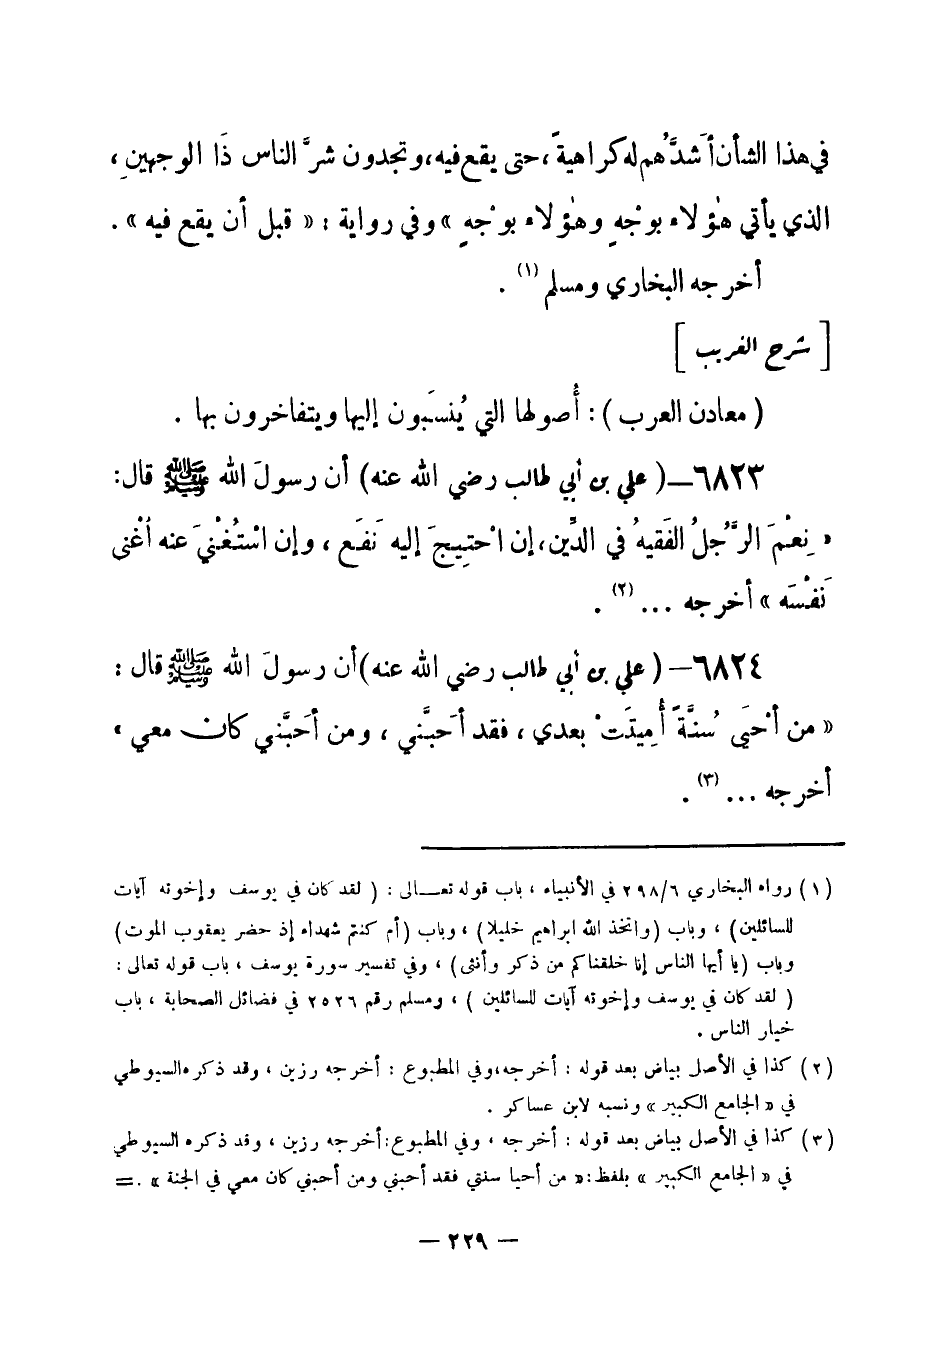 في هذا الشأن أَشدَّهُم له كراهيةً ، حتى يقع فيه ، وتجدون شرَّ الناس ذَا الوجهينِ ،
الذي يأتي هٰؤلاء بوجْهٍ وهٰؤلاء بوجْهٍ » وفي رواية : « قبل أن يقع فيه » .
أخرجه البخاري ومسلم (١) .
[ شرح الغريب ]
( معادن العرب ) : أُصولها التي يُنسَبون إليها ويتفاخرون بها .
٦٨٢٣ – ( علي بن أبي طالب رضي الله عنه ) أن رسولَ الله ﷺ قال :
« نِعْمَ الرَّجلُ الفَقيهُ في الدِّين ، إن احْتِيجَ إليه نَفَع ، وإن اسْتُغْنيَ عنه أغْنى
نَفْسَه » أخرجه ... (٢) .
٦٨٢٤ – ( علي بن أبي طالب رضي الله عنه ) أن رسولَ الله ﷺ قال :
« من أحْيَى سُنَّةً أُمِيتَتْ بعدي ، فقد أحَبَّني ، ومن أحَبَّني كان معي »
أخرجه ... (٣) .
(١) رواه البخاري ٢٩٨/٦ في الأنبياء ، باب قوله تعـالى : ( لقد كان في يوسف وإخوته آيات
للسائلين ) ، وباب ( واتخذ الله ابراهيم خليلا ) ، وباب ( أم كنتم شهداء إذ حضر يعقوب الموت )
وباب ( يا أيها الناس إنا خلقناكم من ذكر وأنثى ) ، وفي تفسير سورة يوسف ، باب قوله تعالى :
( لقد كان في يوسف وإخوته آيات للسائلين ) ، ومسلم رقم ٢٥٢٦ في فضائل الصحابة ، باب
خيار الناس .
(٢) كذا في الأصل بياض بعد قوله : أخرجه ، وفي المطبوع : أخرجه رزين ، وقد ذكره السيوطي
في « الجامع الكبير » ونسبه لابن عساكر .
(٣) كذا في الأصل بياض بعد قوله : أخرجه ، وفي المطبوع : أخرجه رزين ، وقد ذكره السيوطي
في « الجامع الكبير » بلفظ : « من أحيا سنتي فقد أحبني ومن أحبني كان معي في الجنة » . =
– ٢٢٩ –